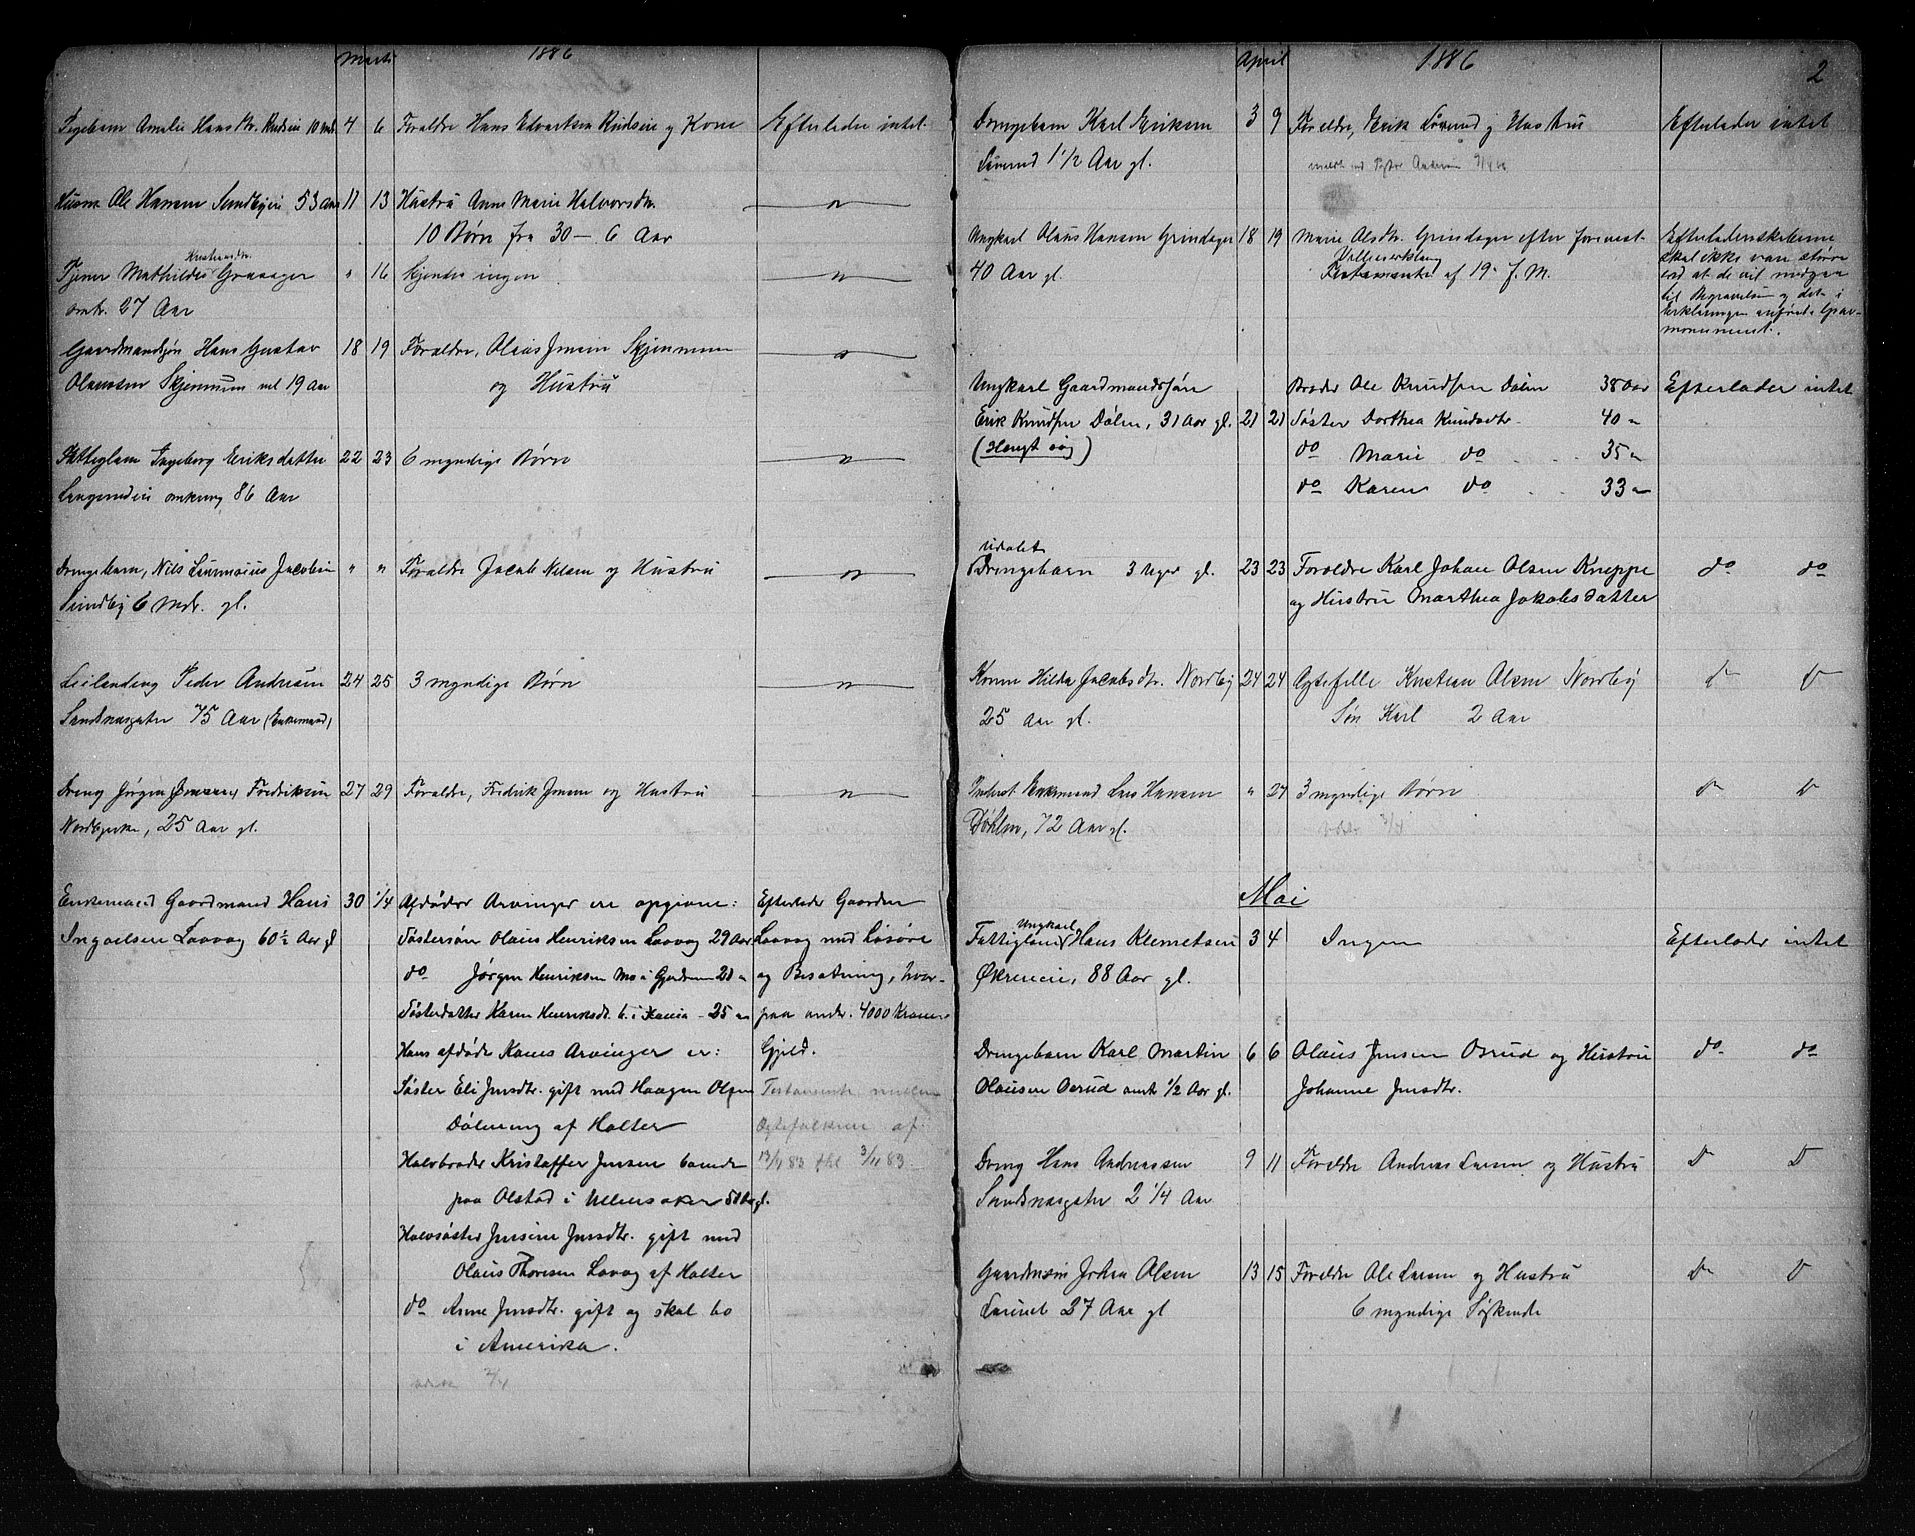 Marts 1886
Pigebarn Amalie Hansdtr. Rudseie 10 mdr. 4 6 Forældre Hans Edvartsen Rudseie og Kone Efterlader intet.
Husm. Ole Hansen Sundbyeie 53 Aar 11 13 Hustru Anne Marie Halvorsdtr. — " —
10 Børn fra 30 – 6 Aar
Kristiansdtr.
Tjener Mathilde Graaager " 16 Kjendes ingen — " —
omkr. 27 Aar
Gaardmandssøn Hans Gustav 18 19 Forældre, Olaus Jensen Skjennum — " —
Olaussen Skjennum vel 19 Aar og Hustru
Fattiglem Ingeborg Eriksdatter 22 23 6 myndige Børn — " —
Langendeie omkring 86 Aar
Drengebarn, Nils Laurnsius Jacobsen " " Forældre Jacob Nilsen og Hustru — " —
Sundby 6 Mdr. gl.
Leilending Peder Andresen 24 25 3 myndige Børn — " —
Sandnæsgater 75 Aar (Enkemand)
Dreng Jørgen (Jensen) Fredriksen 27 29 Forældre, Fredrik Jensen og Hustru — " —
Nordbyeie, 25 Aar gl.
Enkemand Gaardmand Hans 30 1/4 Afdødes Arvinger er opgivne: Efterlader Gaarden
Ingvelsen Laavag 60½ Aar gl Søstersøn Olaus Henriksen Laavag 29 Aar Laavag med Løsøre
do Jørgen Henriksen Mo i Gjerdrum 21 " og Besætning, hvor-
Søsterdatter Karen Henriksdt. b. i Kania – 25 " paa under. 4000 Kroner
Hans afdøde Kones Arvinger er: Gjeld.
Søster Eli Jensdtr. gift med Haagen Olsen Testamente mellem
Dølen og af Holter Ægtefolkene af
Halvbroder Kristoffer Jensen boende 13/4 83 thl 3/11 83.
paa Olstad i Ullensaker 50 Aar gl.
Halvsøster Jensine Jensdtr. gift med
Olaus Thoresen Lavag af Holter
do Anne Jensdtr. gift og skal bo
i Amerika.
2/4
April 1886 2
Drengebarn Karl Eriksen 3 9 Forældre, Erik Løvend og Hustru Efterlader intet
1½ Aar gl.
Ungkarl Olaus Hansen Grindager 18 19 Marie Olsdtr. Grindager efter forevist Efterladenskaberne
40 Aar gl. Testamente af 19. f. M. skal ikke være større
end at de vil medgaa
til Begravelsen og det i
Erklæringen anførte Grav-
monument.
Ungkarl Gaardmandssøn Broder Ole Knudsen Dølen 38 Aar Efterlader intet
Erik Knudsen Dølen, 31 Aar gl. 21 21 Søster Dorthea Knudsdtr. 40 "
(Hængt sig) do Marie do 35 "
do Karen do 33 "
udøbt
Drengebarn 3 Uger gl. 23 23 Forældre Karl Johan Olsen Kneppe do do
og Hustru Marthea Jakobsdatter
Kone Hilda Jacobsdtr. Nordby 24 24 Ægtefelle Kristian Olsen Nordby do do
25 Aar gl. Søn Karl 2 Aar
Inderst Enkemand Lars Hansen " 27 3 myndige Børn do do
Døhlen, 72 Aar gl.
Mai
Ungkarl
Fattiglem Hans Klemetsen 3 4 Ingen Efterlader intet
Økreneie, 88 Aar gl.
Drengebarn Karl Martin 6 6 Olaus Jensen Osrud og Hustru do do
Olausen Osrud omtr ½ Aar gl. Johanne Jensdtr.
Dreng Hans Andreassen 9 11 Forældre Andreas Larsen og Hustru do do
Sandnæsgater 2 1/4 Aar
Gaardmssøn Johan Olsen 13 15 Forældre Ole Larsen og Hustru do do
27 Aar gl 6 myndige Søskende